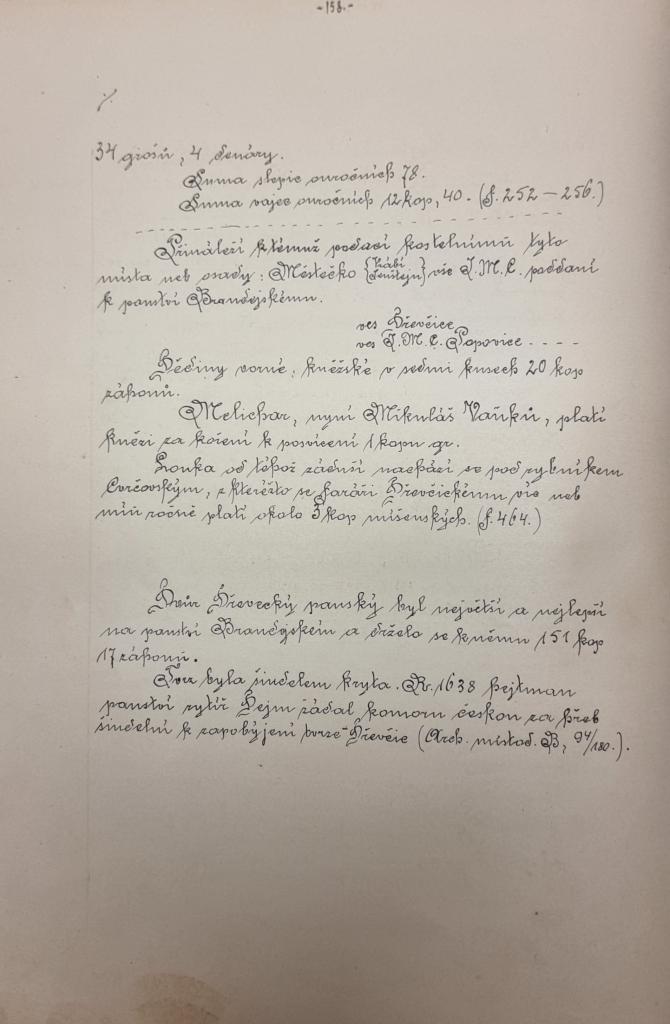 -158.-
./.
34 grošů, 4 denáry.
Suma slepic ouročních 78.
Suma vajec ouročních 12 kop, 40. (f. 252 – 256.)
Přináleží k témuž podací kostelnímu tyto
místa neb osady: Městečko {Hrábí Jenštejn} vše J.M.C. poddaní
k panství Brandejskému.
ves Dřevčice
ves J.M.C. Popovice - - - -
Dědiny vorné, kněžské v sedmi kusech 20 kop
záhonů.
Melichar, nyní Mikuláš Vaňků, platí
knězi za koření k posvícení 1 kopu gr.
Louka od téhož záduší nachází se pod rybníkem
Cvrčovským, z kteréžto se faráři Dřevčickému víc neb
míň ročně platí okolo 3 kop míšenských. (f. 464.)
Dvůr Dřevecký panský byl největší a nejlepší
na panství Brandejském a drželo se k němu 151 kop
17 záhonů.
Tvrz byla šindelem kryta. R. 1638 hejtman
panství rytíř Hejm žádal komoru českou za hřeb
šindelní k zapobýjení tvrze Dřevčic (Arch. místod. B, 94/180.).